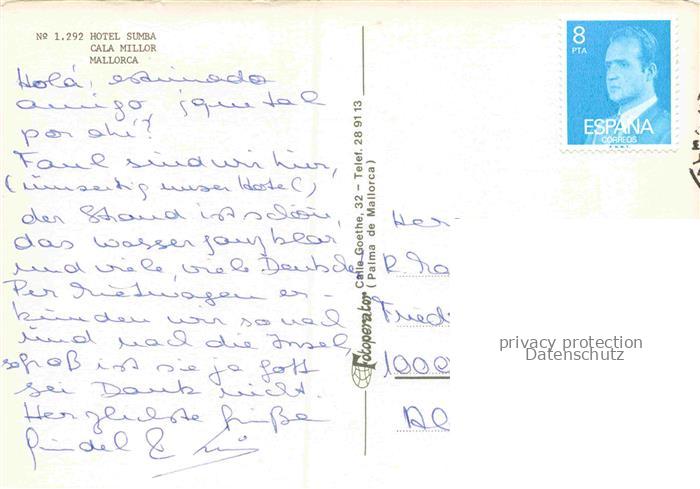 Nº 1.292 HOTEL SUMBA
CALA MILLOR
MALLORCA
Holá, estimado
amigo ¡que tal
por ahi?
Faul sind wir hier,
(umseitig unser Hotel)
der Strand ist schön,
das Wasser ganz klar
und viele, viele Deutsche
Per Mietwagen er-
kunden wir so nach
und nach die Insel,
so groß ist sie ja gott
sei Dank nicht.
Herzlichste Grüße
Fotoperator Calle Goethe, 32 - Telef. 28 91 13
(Palma de Mallorca)
8
PTA
ESPAÑA
CORREOS
Her
R.
Fried
1000
privacy protection
Datenschutz